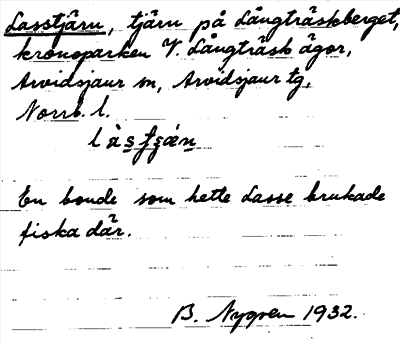 Lasstjärn, tjärn på Långträskberget,
kronoparken V. Långträsk ägor,
Arvidsjaur sn, Arvidsjaur tg,
Norrb. l.
En bonde som hette Lasse brukade
fiska där.
B. Nygren 1932.